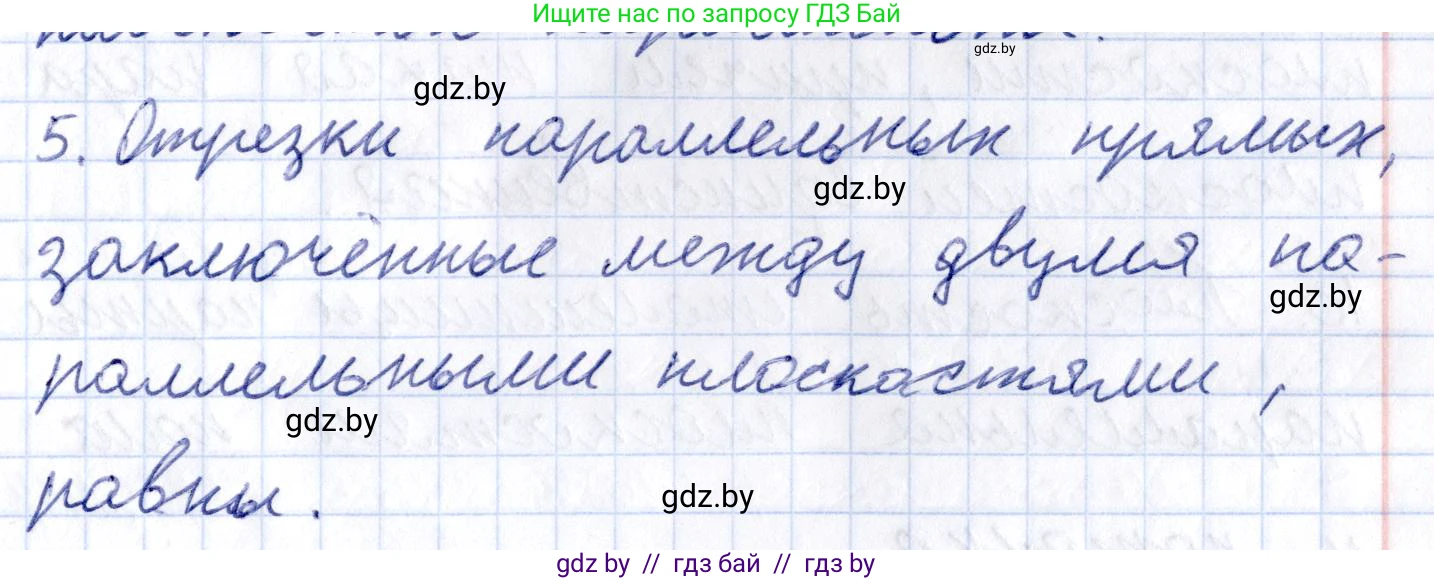 Ищите нас по запросу ГДЗ Бай
gdz.by
gdz.by
5. Отрезки параллельных прямых,
gdz.by
заключённые между двумя па-
gdz.by
раллельными плоскостями,
gdz.by
равны.
gdz.by
gdz by // гдз бай // gdz by